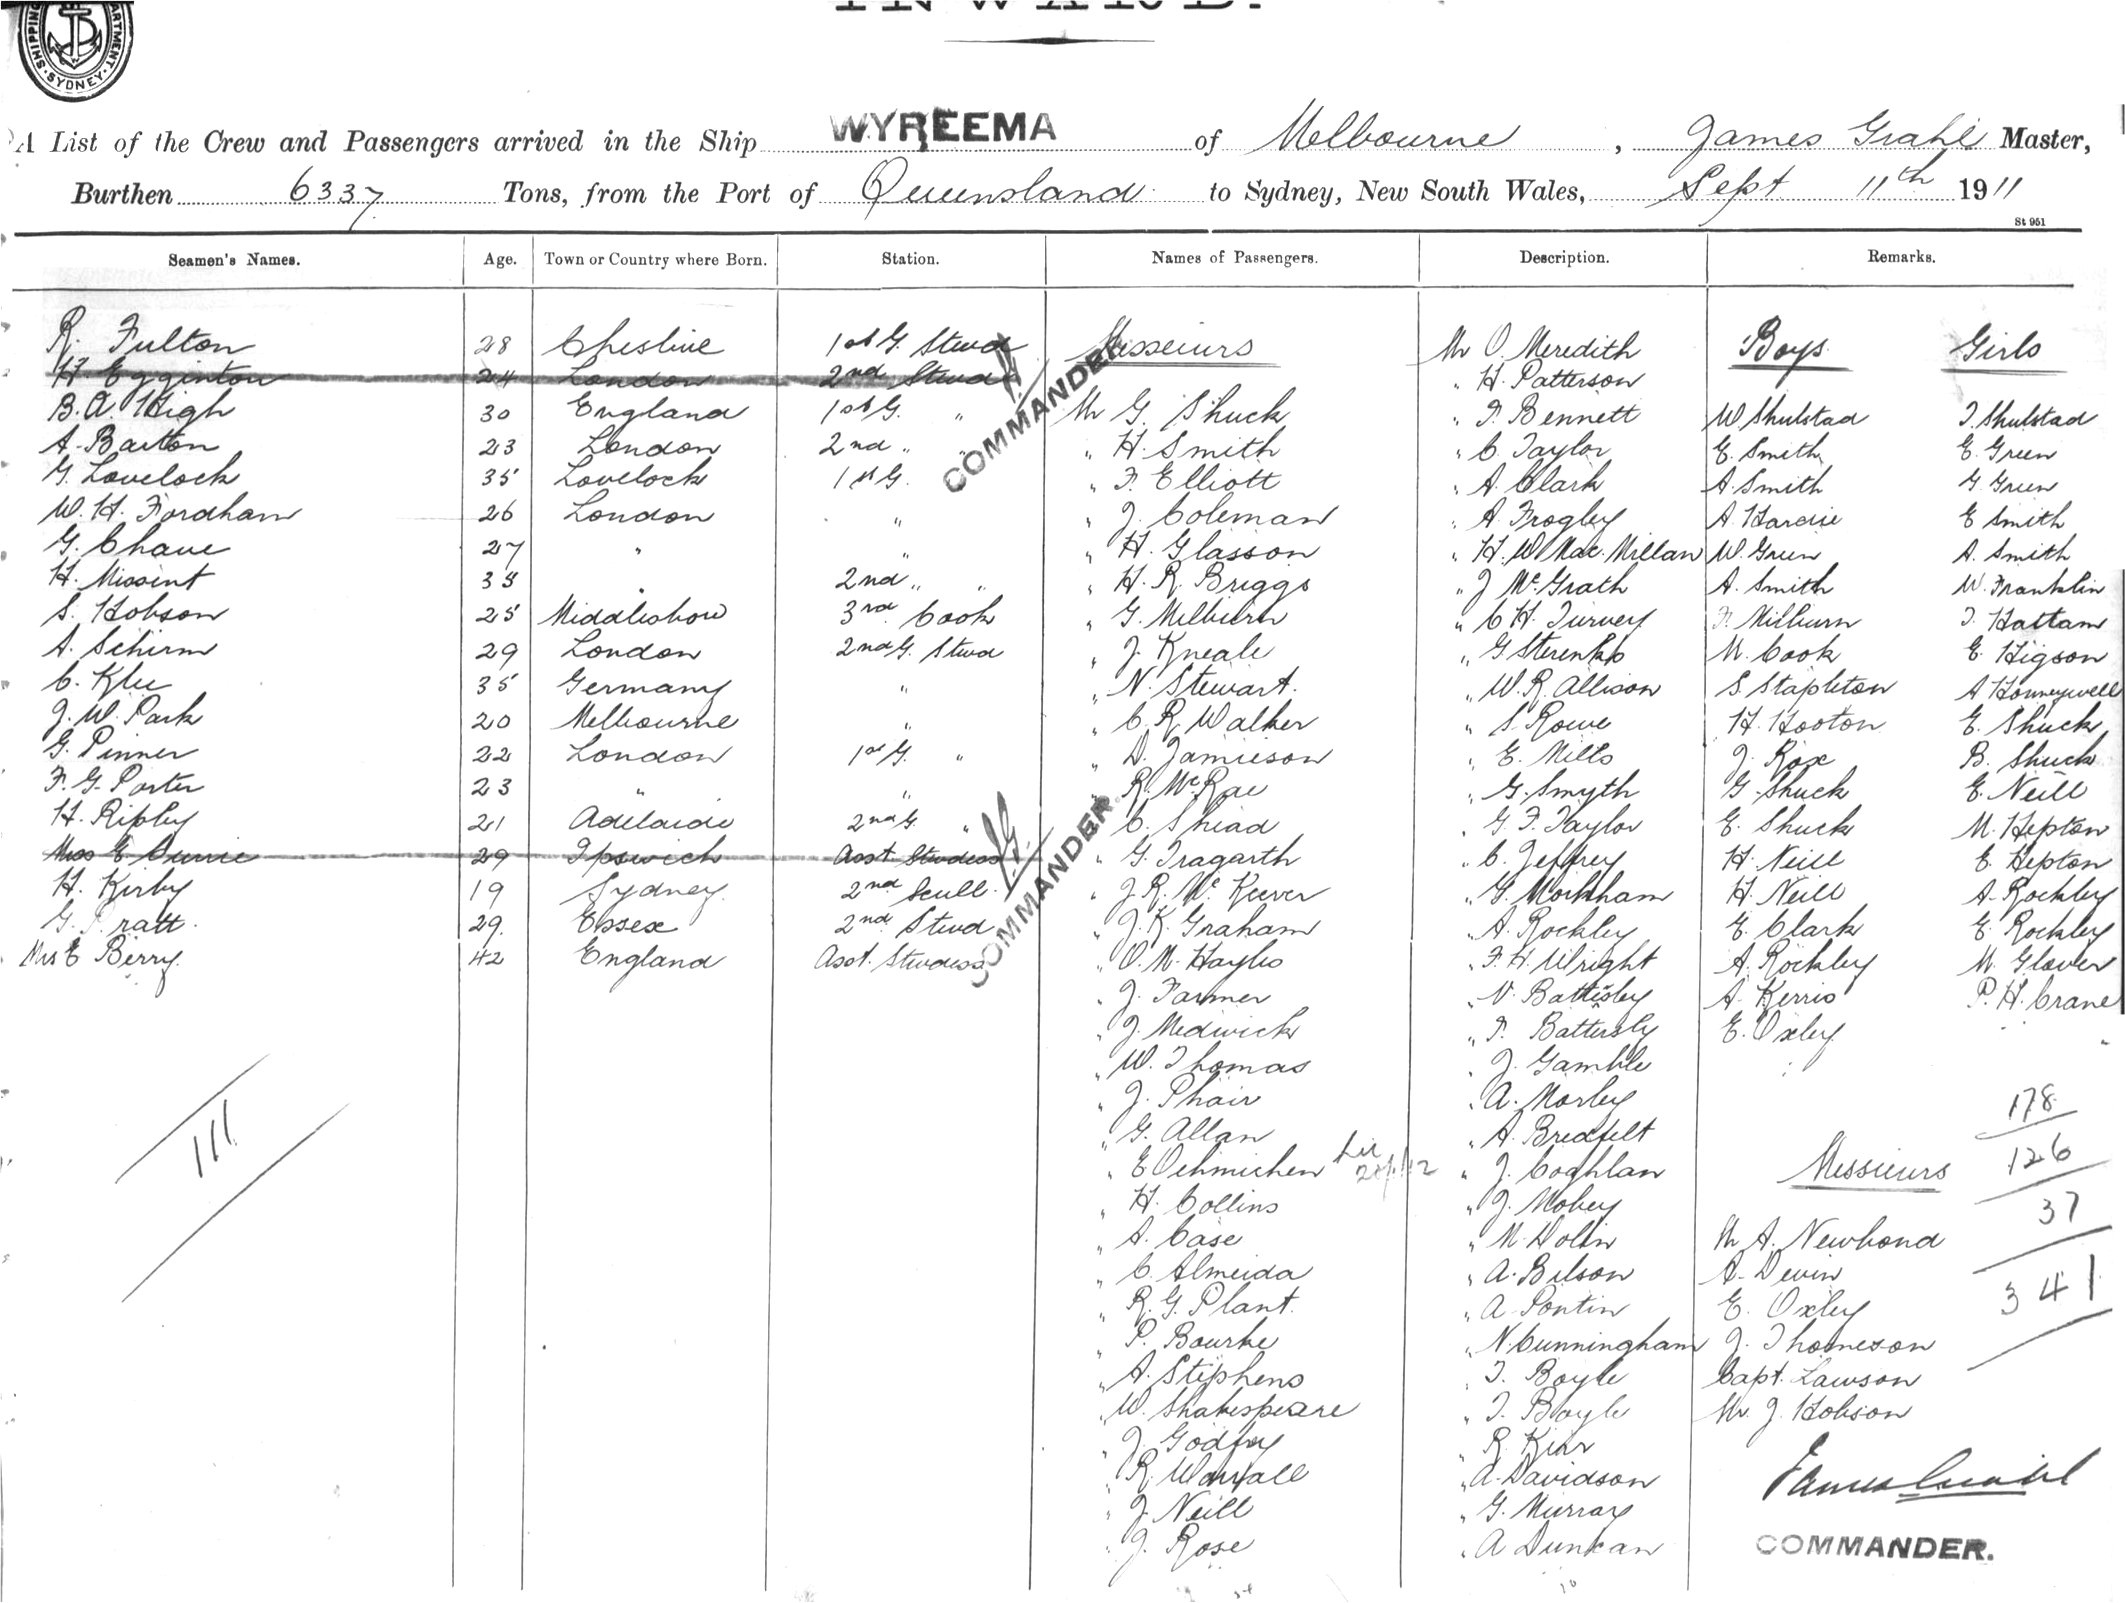 INWARD.
SHIPPING DEPARTMENT. SYDNEY.
A List of the Crew and Passengers arrived in the Ship WYREEMA of Melbourne, James Grahl Master,
Burthen 6337 Tons, from the Port of Queensland to Sydney, New South Wales, Sept 11th 1911
St 951
Seamen's Names. Age. Town or Country where Born. Station. Names of Passengers. Description. Remarks.
R. Fulton 28 Cheshire 1st G. Stwd Messieurs Mr O. Meredith Boys Girls
H Egginton 24 London 2nd Stwd " H. Patterson
B. A. High 30 England 1st G. " Mr G. Shuck " F. Bennett W Shulstad I. Shulstad
A. Barton 23 London 2nd " " " H. Smith " C. Taylor E. Smith E. Green
G. Lovelock 35 Lovelock 1st G. " F. Elliott " A. Clark A. Smith G Green
W. H. Fordham 26 London " " J. Coleman " A. Frogley A. Hardie E Smith
G. Chave 27 " " " H. Glasson " H. W. Mac. Millan W. Green A. Smith
H. Missint 35 " 2nd " " " H. R. Briggs " J McGrath A. Smith W. Franklin
S. Hobson 25 Middlesboro 3rd Cook " G. Milburn " C H. Turvey F. Milburn I. Hattam
A. Schirm 29 London 2nd G. Stwd " J. Kneale " G M. Cook E. Higson
C. Klee 35 Germany " " N. Stewart. " W. R. Allison S Stapleton A Honneywell
J. W. Park 20 Melbourne " " C. R. Walker " S. Rowe H. Hooton E. Shuck
G. Pinner 22 London 1st G. " " D. Jamieson " E. Mills J. Rose B. Shuck
F. G. Porter 23 " " " R. McRae " G. Smyth G. Shuck E. Neill
H. Ripley 21 Adelaide 2nd G. " " C. Shead " G. F. Taylor E. Shuck M. Hepton
Miss E Currie 29 Ipswich Asst. Stwdess " G. Tragarth " C. Jeffrey H. Neill E. Hepton
H. Kirby 19 Sydney 2nd Scull. " J. R. McKeever " G. Mockham H. Neill A. Rockley
G. Pratt. 29. Essex 2nd Stwd " J. K. Graham " A. Rockley E. Clark E. Rockley
Mrs E Berry 42 England Asst. Stwdess " O. M. Hayles " F. H. Wright A. Rockley M. Glover
COMMANDER
COMMANDER
" J. Farmer " V. Battersby A. Kerris P. H. Crane
" J. Medwick " F. Battersby E. Oxley
" W. Thomas " J. Gamble
" J. Phair " A. Morley 178
111 " G. Allan " A. Bredfelt
" E Oehmichen " J. Coghlan Messieurs 126
" H. Collins " J. Mobey 37
" A. Case " M. Dolin Mr A. Newbond
" C. Almeida " A. Bilson A. Devin
" R. G. Plant. " A. Pontin E. Oxley 341
" P. Bourke " N. Cunningham J. Thomeson
" A. Stephens " T. Boyle Capt. Lawson
" W. Shakespeare " T. Boyle Mr. J. Hobson
" J. Godfrey " R. Kerr
" R. Worrall " A. Davidson
" J. Neill " G. Murray
" J. Rose " A Duncan
COMMANDER.